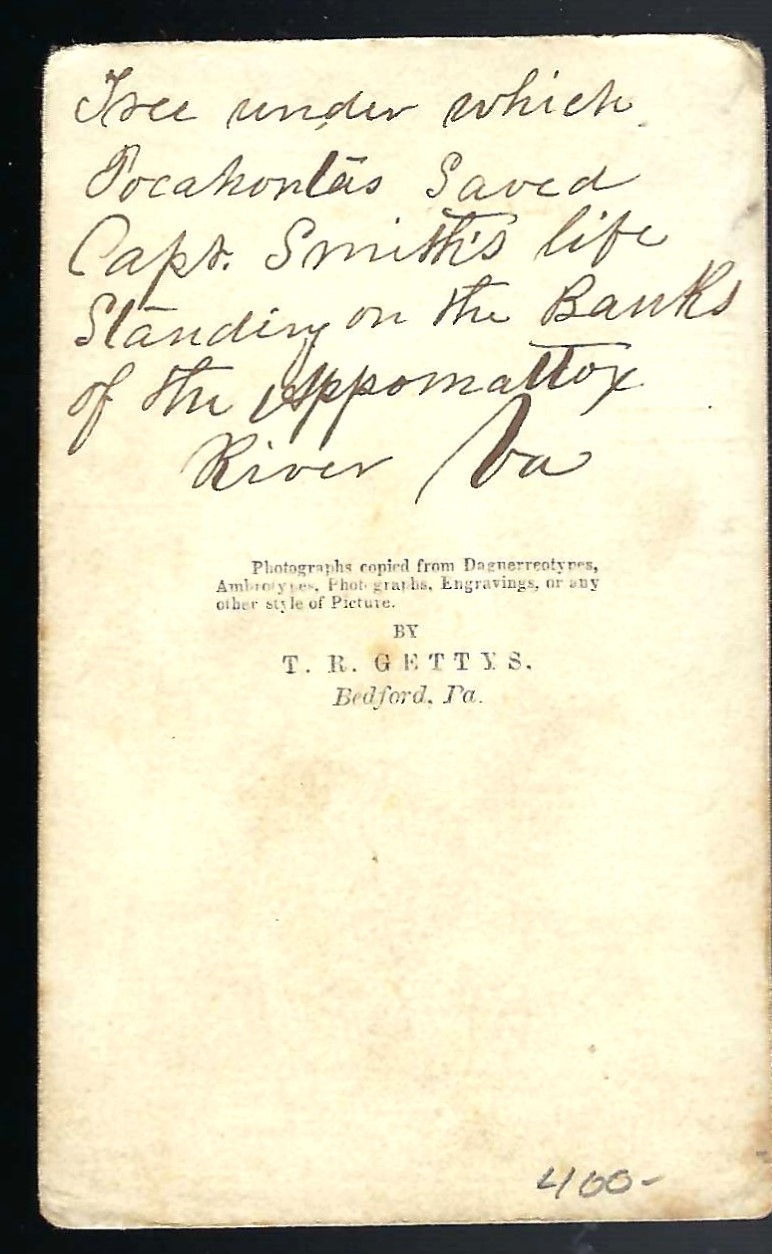 Tree under which
Pocahontas Saved
Capt. Smith's life
Standing on the Banks
of the Appomattox
River Va
Photographs copied from Daguerreotypes,
Ambrotypes, Photographs, Engravings, or any
other style of Picture.
BY
T. R. GETTYS.
Bedford, Pa.
400-